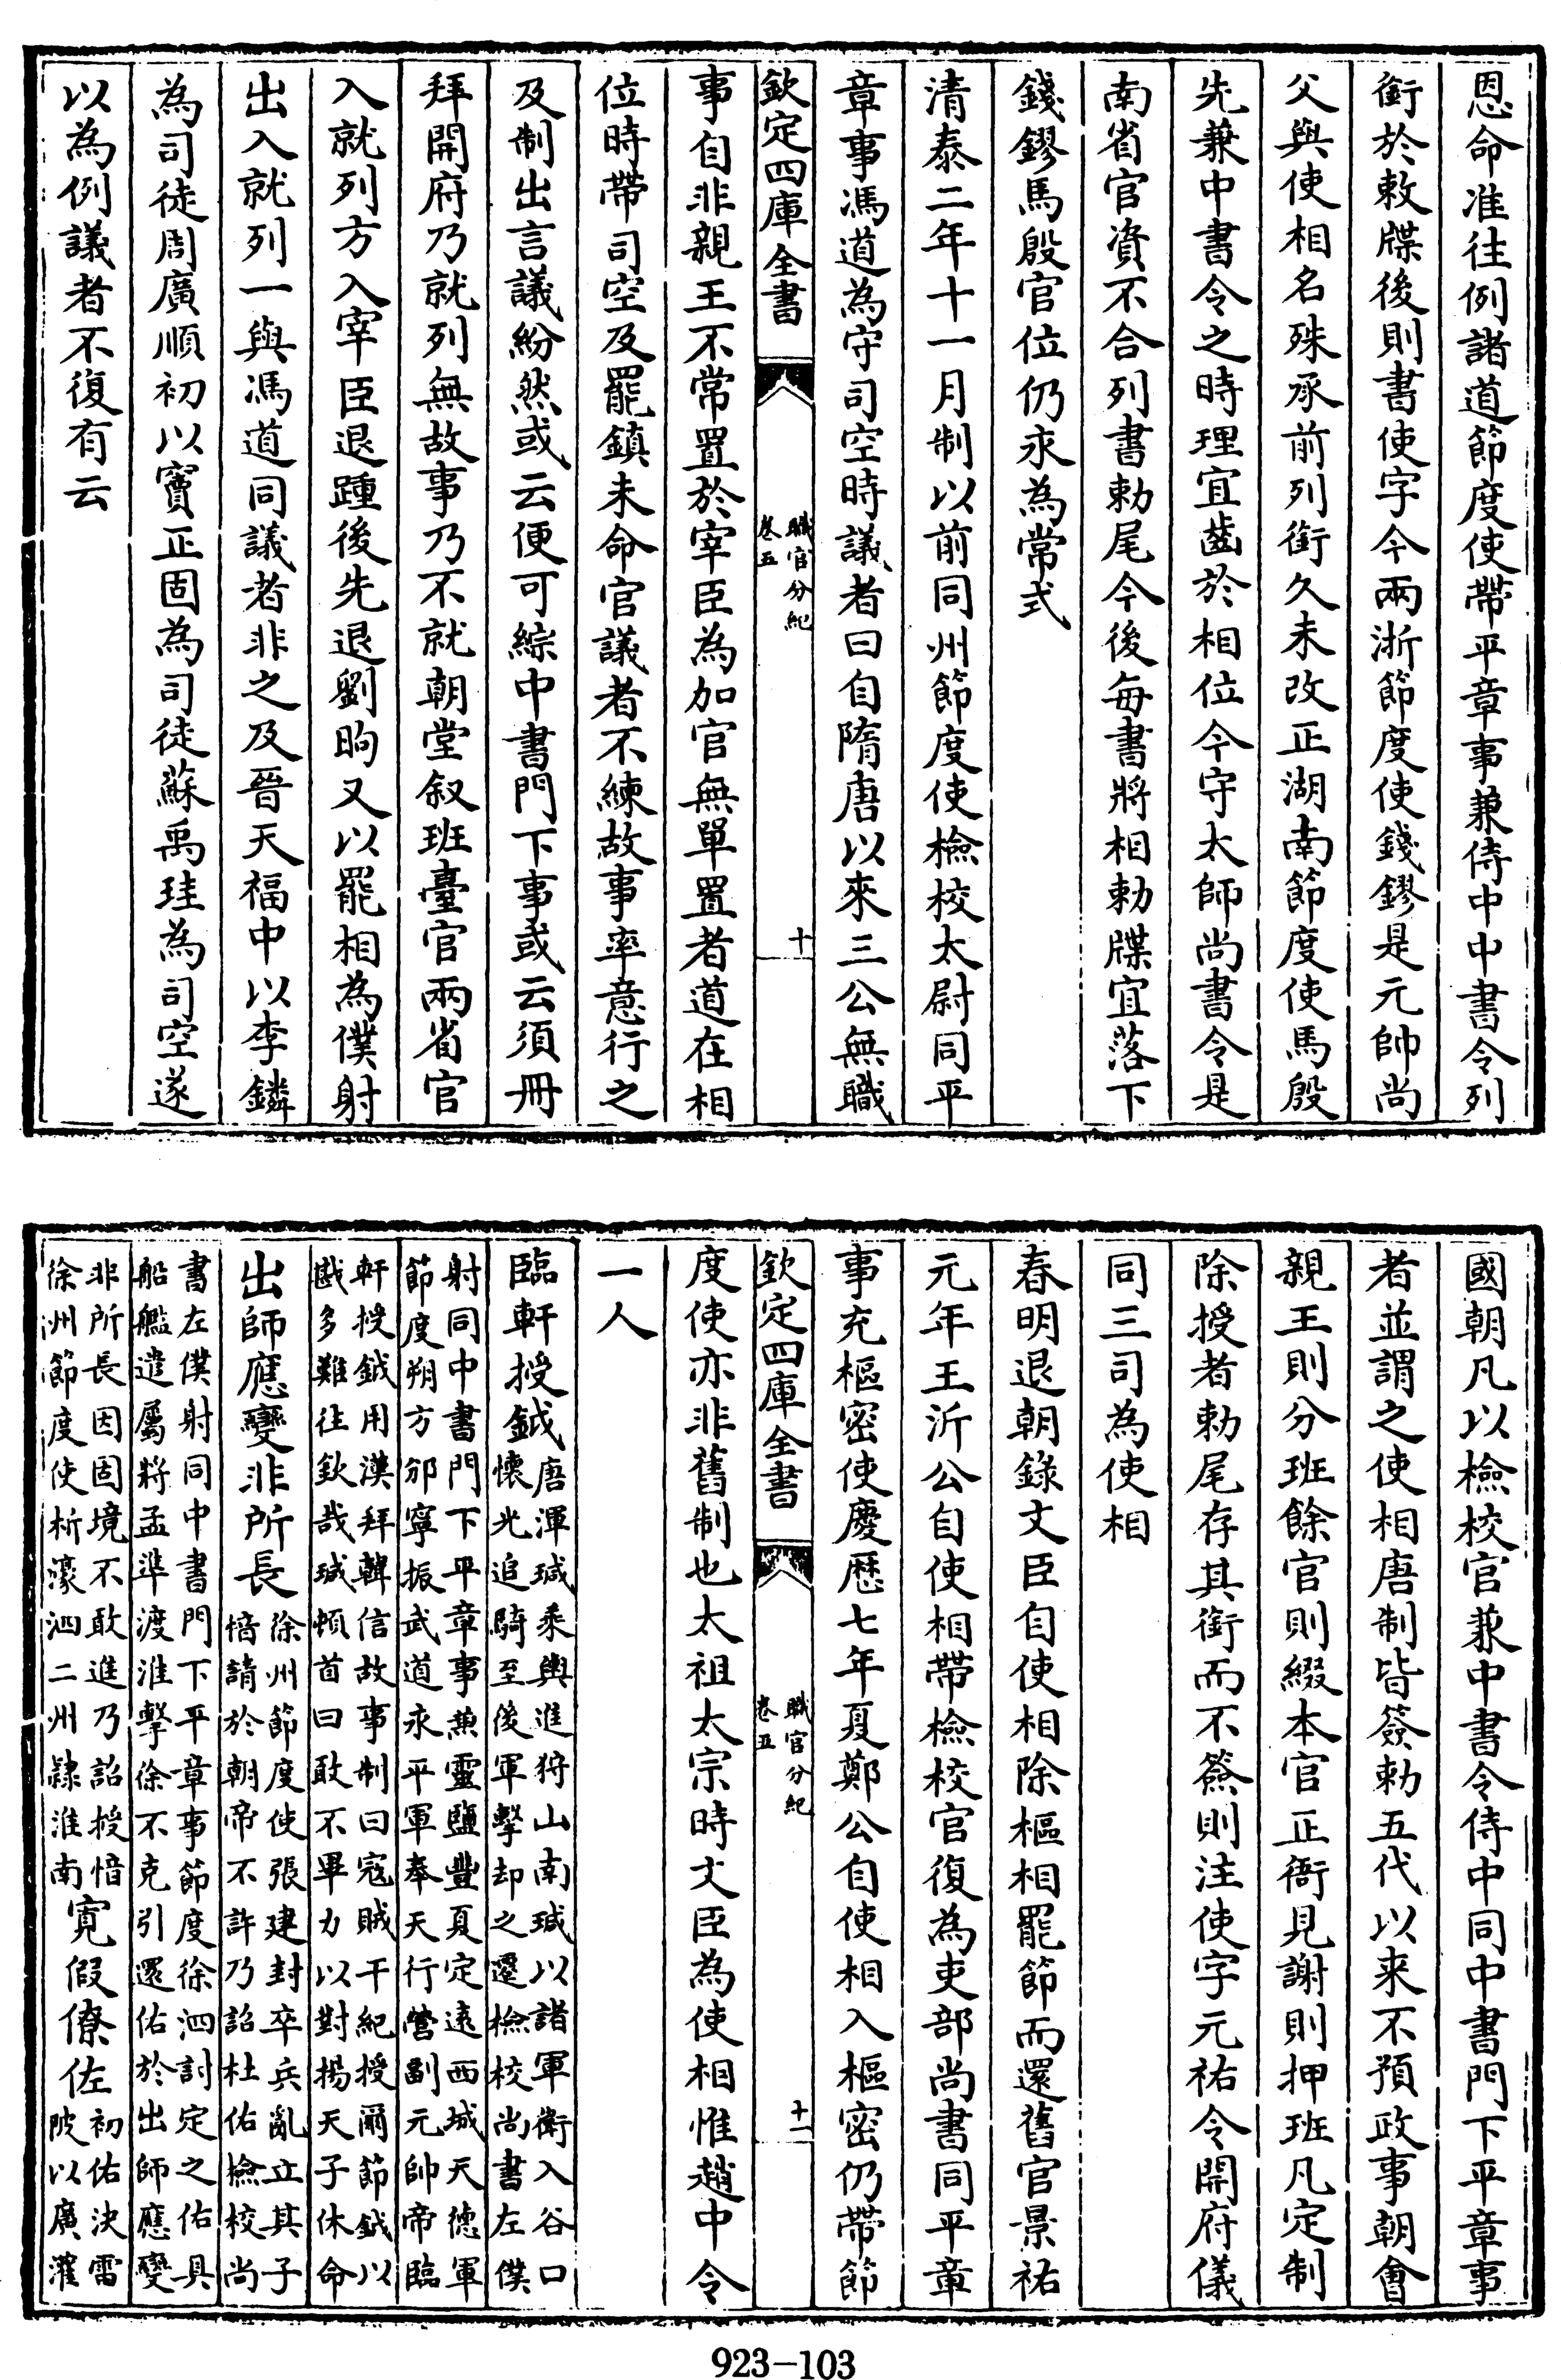 恩命准往例諸道節度使帶平章事兼侍中中書令列
銜於敕牒後則書使字今兩浙節度使錢鏐是元帥尚
父與使相名殊承前列銜久未改正湖南節度使馬殷
先兼中書令之時理宜齒於相位今守太師尚書令是
南省官資不合列書勅尾今後每書將相勅牒宜落下
錢鏐馬殷官位仍永為常式
清泰二年十一月制以前同州節度使檢校太尉同平
章事馮道為守司空時議者曰自隋唐以來三公無職
欽定四庫全書
職官分紀
卷五
十
事自非親王不常置於宰臣為加官無單置者道在相
位時帶司空及罷鎮未命官議者不練故事率意行之
及制出言議紛然或云便可綜中書門下事或云須冊
拜開府乃就列無故事乃不就朝堂叙班臺官兩省官
入就列方入宰臣退踵後先退劉昫又以罷相為僕射
出入就列一與馮道同議者非之及晉天福中以李鏻
為司徒周廣順初以竇正固為司徒蘇禹珪為司空遂
以為例議者不復有云
國朝凡以檢校官兼中書令侍中同中書門下平章事
者並謂之使相唐制皆簽勅五代以来不預政事朝會
親王則分班餘官則綴本官正衙見謝則押班凡定制
除授者勅尾存其銜而不簽則注使字元祐令開府儀
同三司為使相
春明退朝錄文臣自使相除樞相罷節而還舊官景祐
元年王沂公自使相帶檢校官復為吏部尚書同平章
事充樞密使慶歷七年夏鄭公自使相入樞密仍帶節
欽定四庫全書
職官分紀
卷五
十一
度使亦非舊制也太祖太宗時文臣為使相惟趙中令
一人
臨軒授鉞唐渾瑊乘輿進狩山南瑊以諸軍衛入谷口
懷光追騎至後軍擊却之遷檢校尚書左僕
射同中書門下平章事兼靈鹽豐夏定遠西城天德軍
節度朔方邠寧振武道永平軍奉天行營副元帥帝臨
軒授鉞用漢拜韓信故事制曰寇賊干紀授爾節鉞以
戡多難往欽哉瑊頓首曰敢不畢力以對揚天子休命
出師應變非所長徐州節度使張建封卒兵亂立其子
愔請於朝帝不許乃詔杜佑檢校尚
書左僕射同中書門下平章事節度徐泗討定之佑具
船艦遣屬將孟準渡淮擊徐不克引還佑於出師應變
非所長因固境不敢進乃詔授愔
徐州節度使析濠泗二州隸淮南寛假僚佐初佑決雷
陂以廣灌
923-103